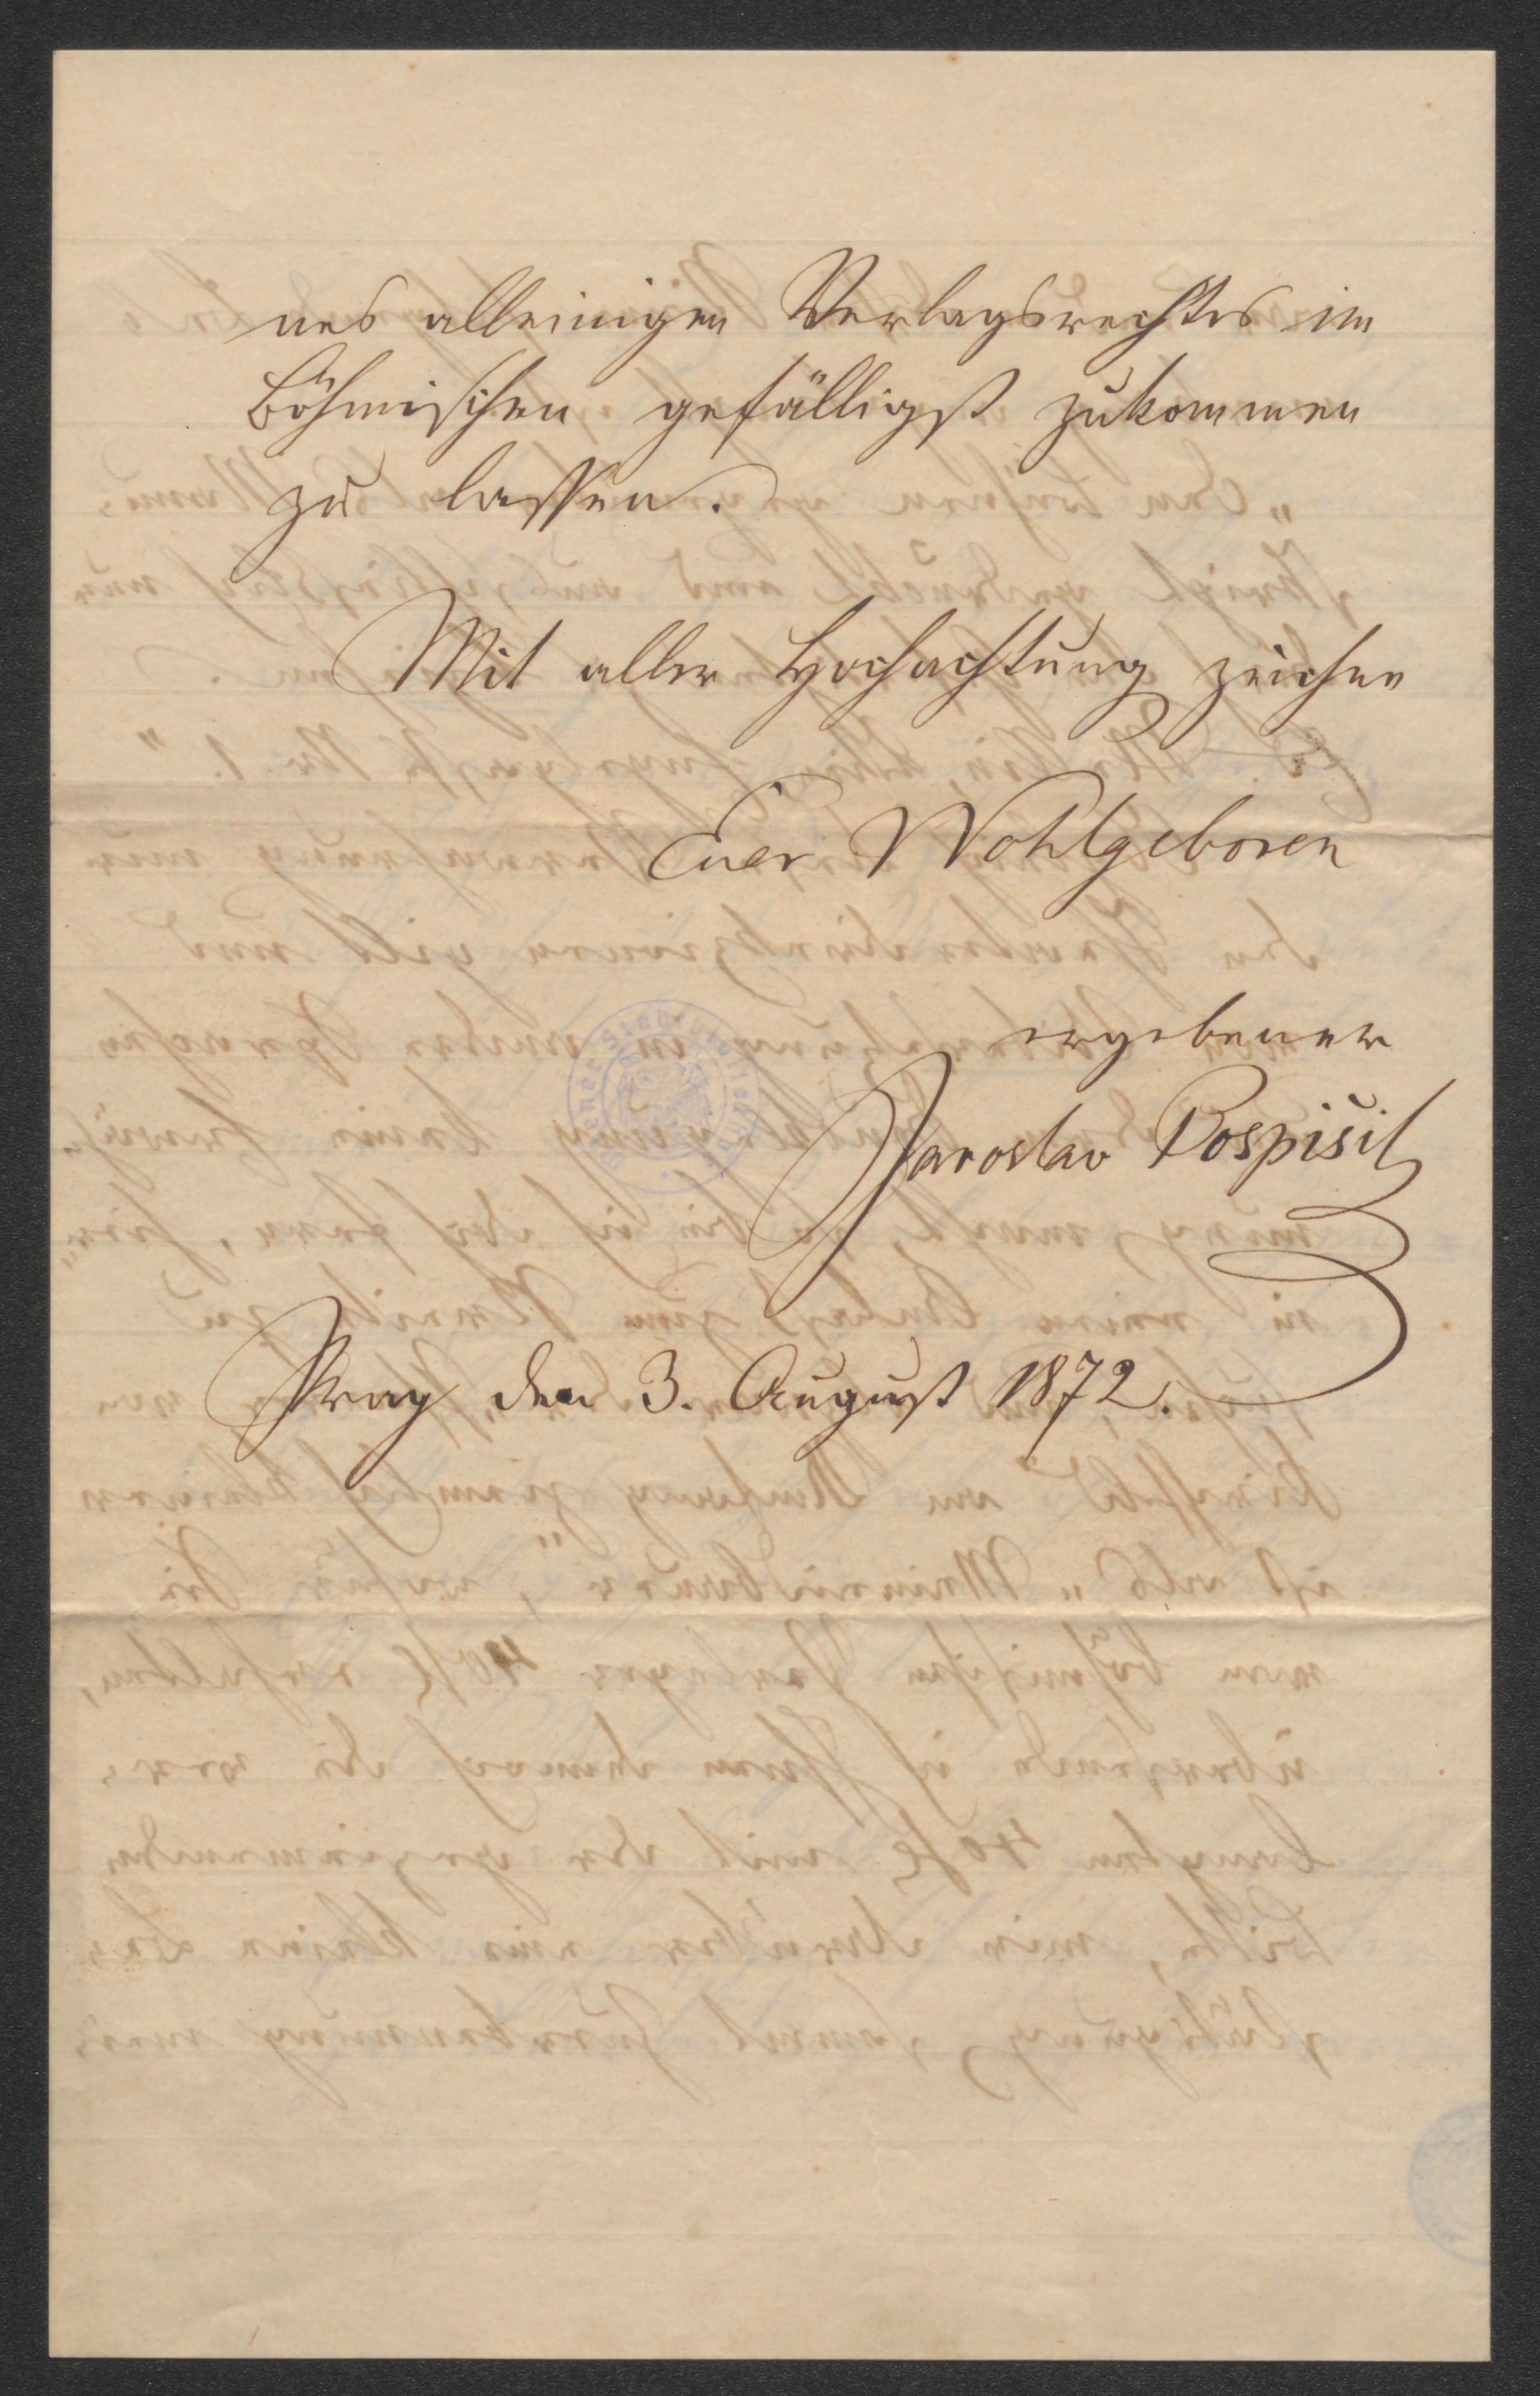 nes alleinigen Verlagsrechtes im
Böhmischen gefälligst zukommen
zu lassen.
Mit aller Hochachtung zeichne
Euer Wohlgeboren
ergebener
Jaroslav Pospišil
Prag den 3. August 1872.